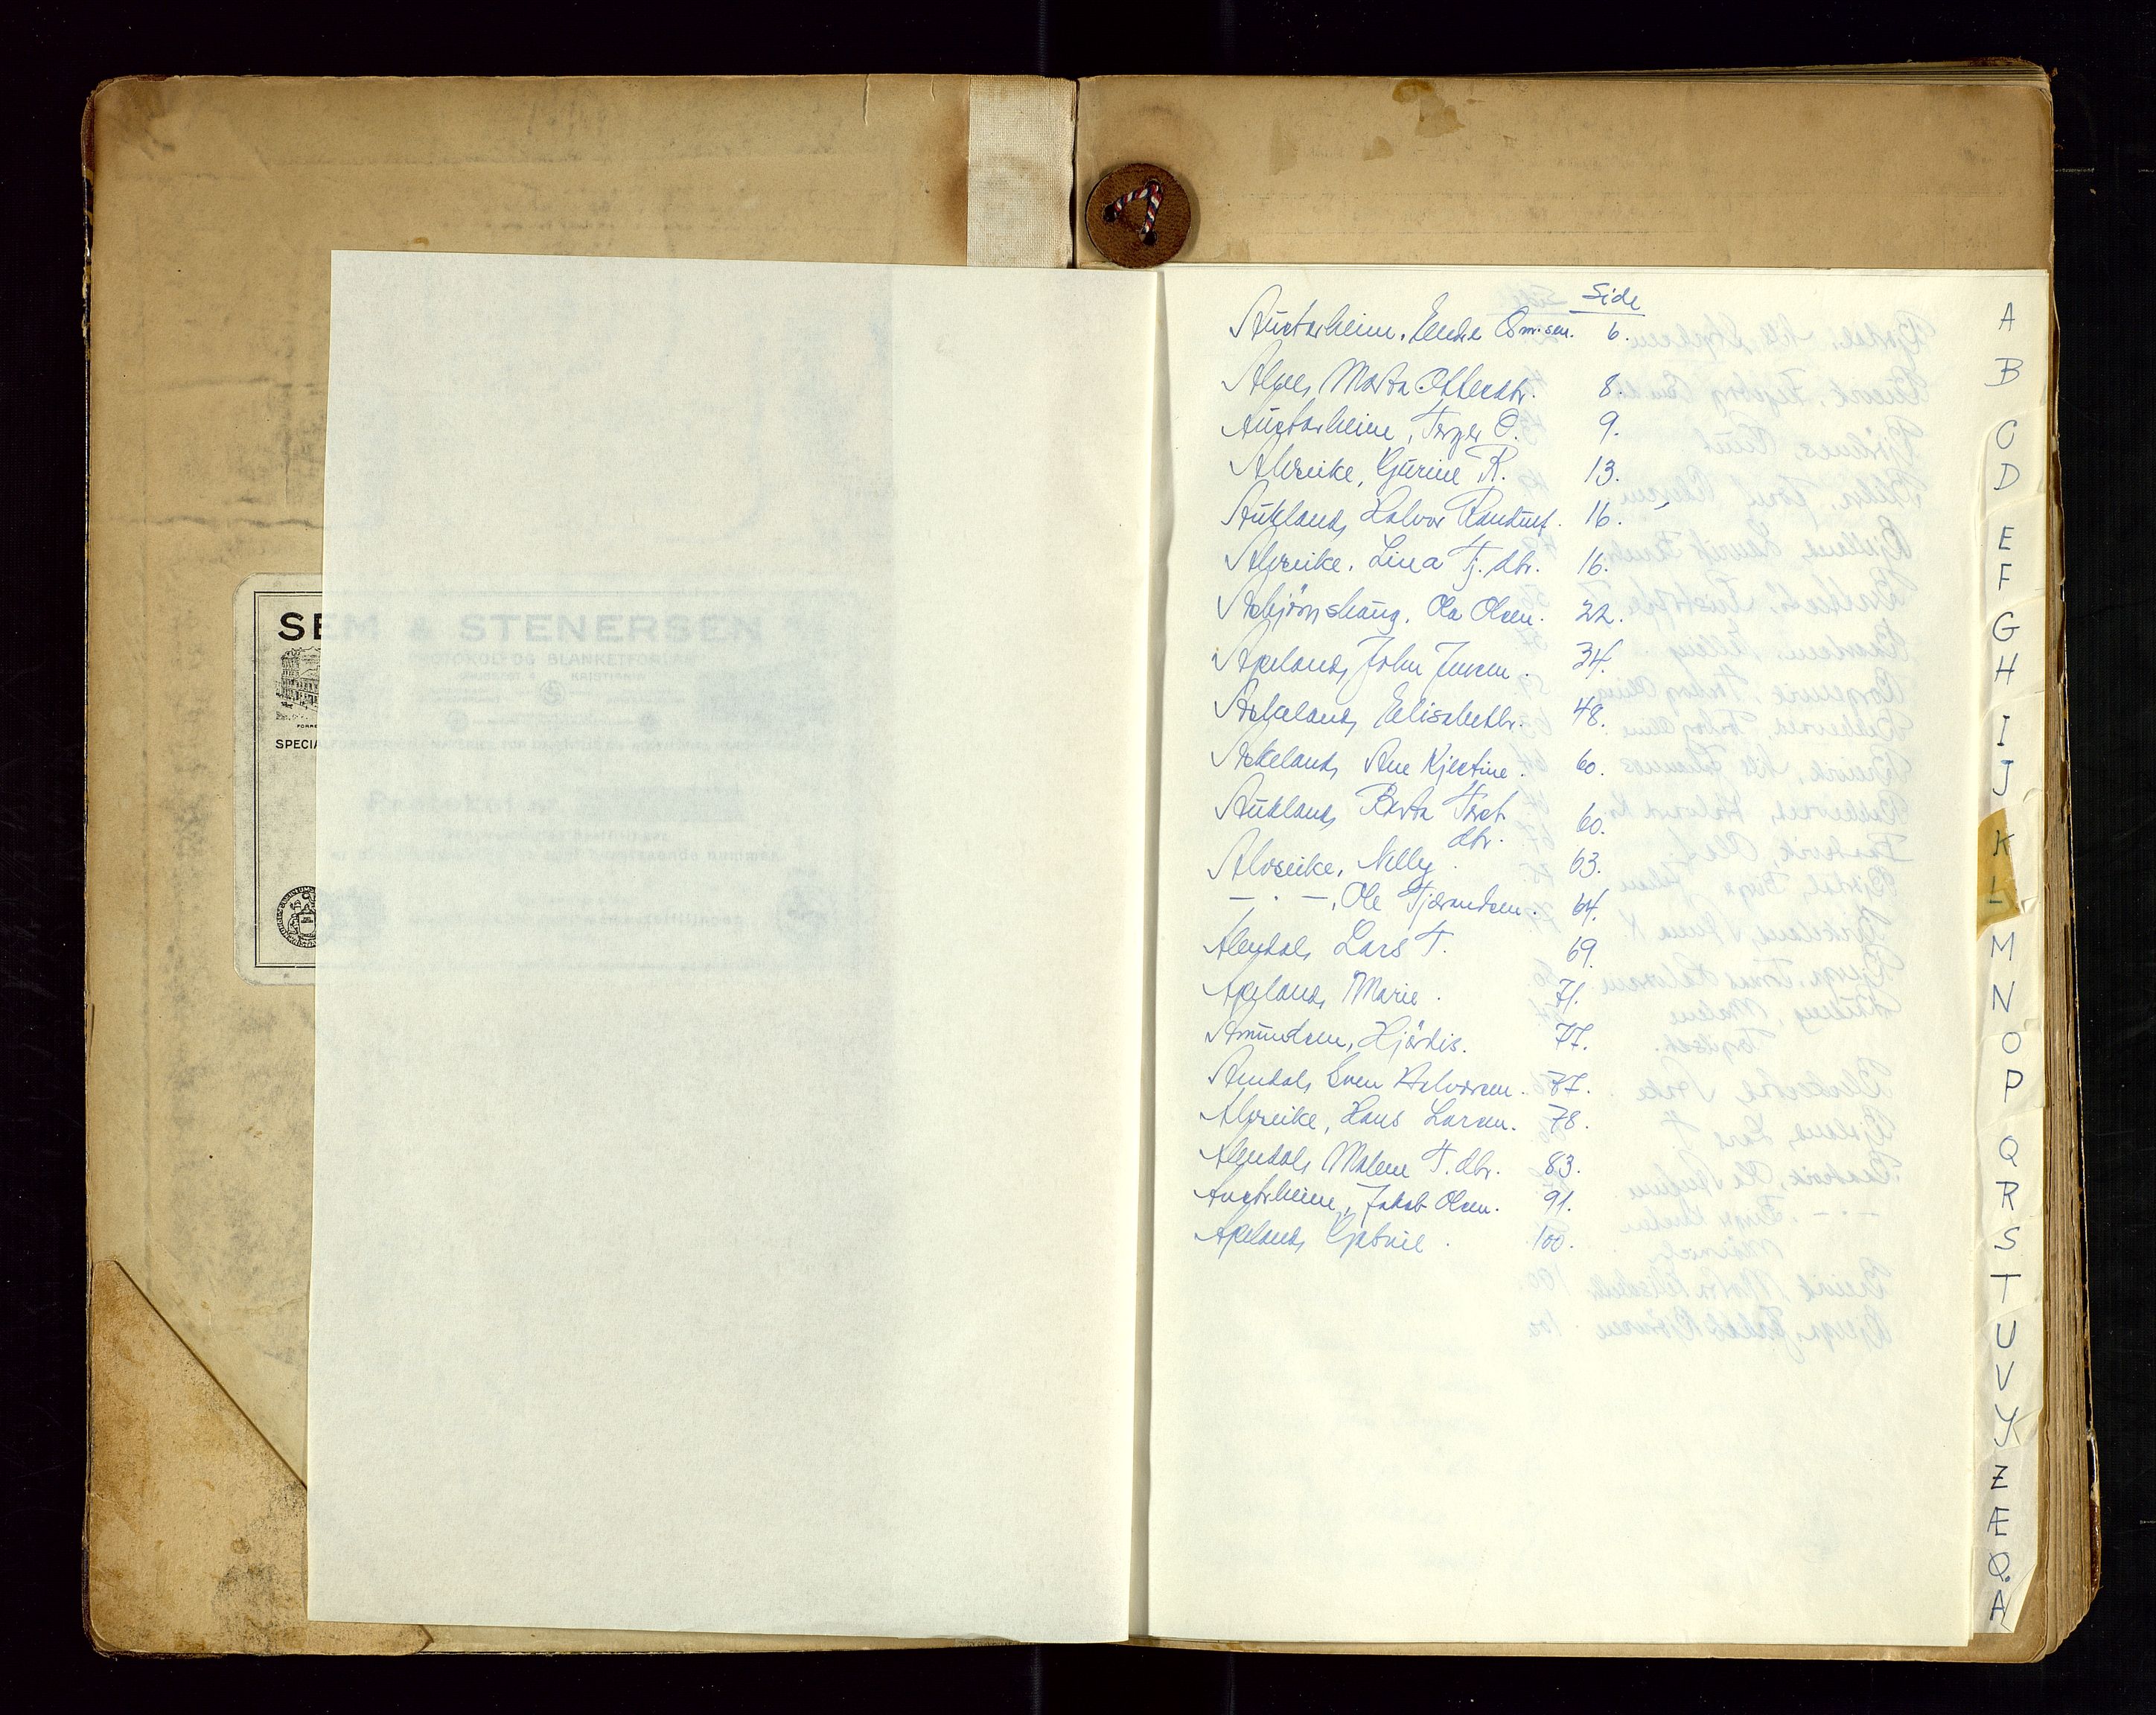 SEM & STENERSEN
PROTOKOL OG BLANKETFORLAG
KRISTIANIA
SPECIA
Protokol nr
Side
Austarheim, Endre Omsen. 6.
Alnes, Marta Ottersdtr. 8.
Austarheim, Torger O. 9.
Alvseike, Gurine R. 13.
Aukland, Halvor Randulf. 16.
Alvseike, Lina Tj. dtr. 16.
Asbjörnshaug, Ola Olsen. 22.
Apeland, John Jensen. 34.
Askeland, Elisabethtr. 48.
Askeland, Ane Kjestine. 60.
Aukland, Berta Torst 60.
dtr.
Alvseike, Nelly. 63.
— . —, Ole Tjerandsen. 64.
Alendal, Lars T. 69.
Apeland, Marie. 71.
Amundsen, Hjördis. 77.
Amdal, Sven Halvorsen. 87.
Alvseike, Hans Larsen. 78.
Alendal, Malene T. dtr. 83.
Austrheim, Jakob Olsen. 91.
Apeland, Gabriel. 100.
A
B
C
D
E
F
G
H
I
J
K
L
M
N
O
P
Q
R
S
T
U
V
Y
Z
Æ
Ø.
Å